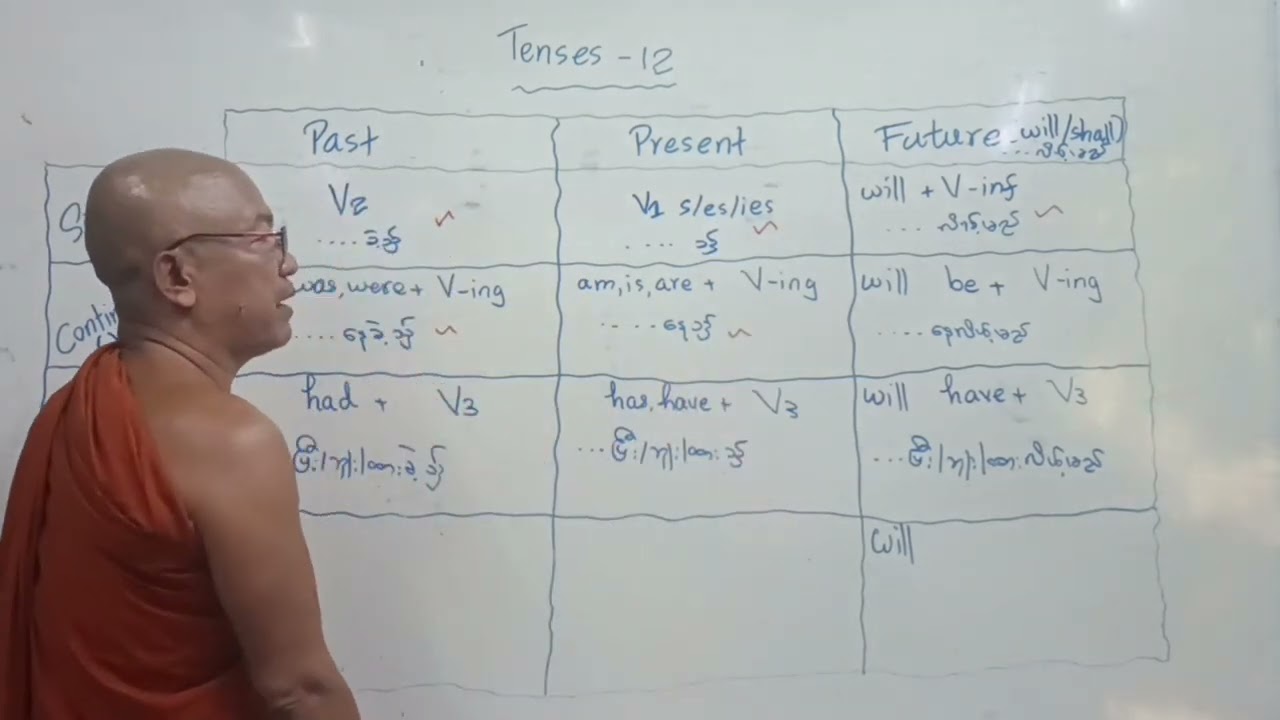 Tenses - 12
Past Present Future (will/shall)
....လိမ့်မည်
V2 V1 s/es/ies will + V-inf
.... ခဲ့သည် .... သည် ... လိမ့်မည်
Conti
was, were + V-ing am, is, are + V-ing will be + V-ing
.... နေခဲ့သည် .... နေသည် .... နေလိမ့်မည်
had + V3 has, have + V3 will have + V3
ပြီး/ဘူး/ထားခဲ့သည် ... ပြီး/ဘူး/ထားသည် ... ပြီး/ဘူး/ထားလိမ့်မည်
will